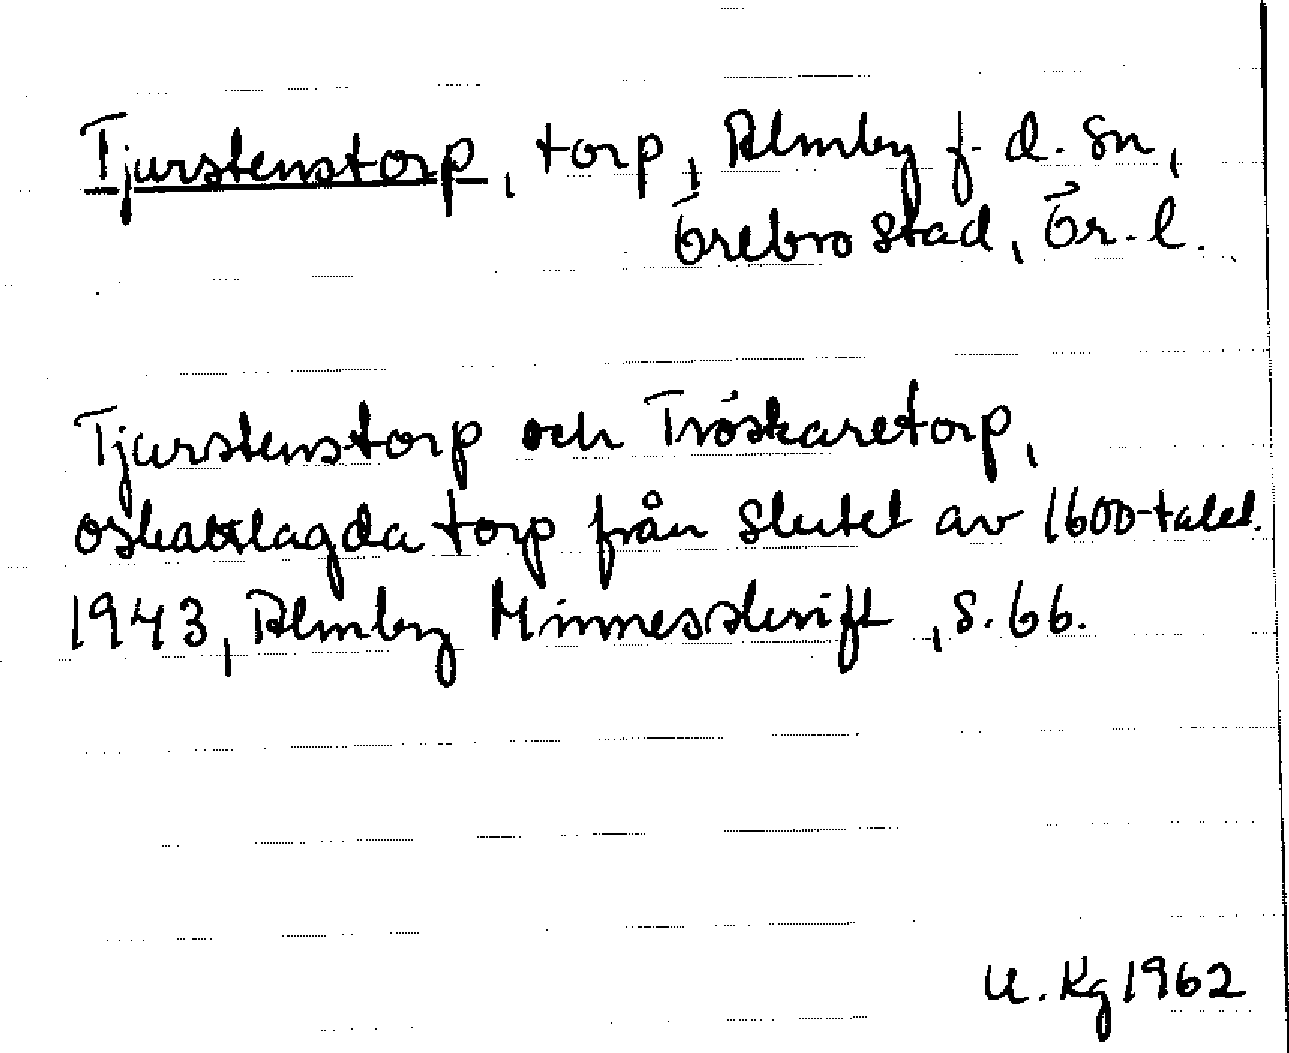 Tjurstenstorp, torp, Almby f. d. sn,
Örebro stad, Ör. l.
Tjurstenstorp och Tröskaretorp,
oskattlagda torp från slutet av 1600-talet.
1943, Almby Minnesskrift, s. 66.
U. Kg 1962